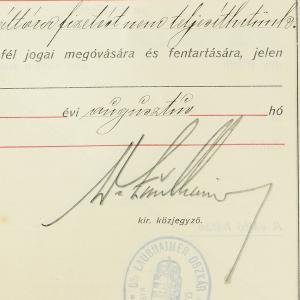 váltóra fizetést nem teljesíthetünk.
fél jogai megóvására és fentartására, jelen
évi augusztus hó
Dr Laulhaimer
kir. közjegyző.
DR LAUBHAIMER OSZKÁR